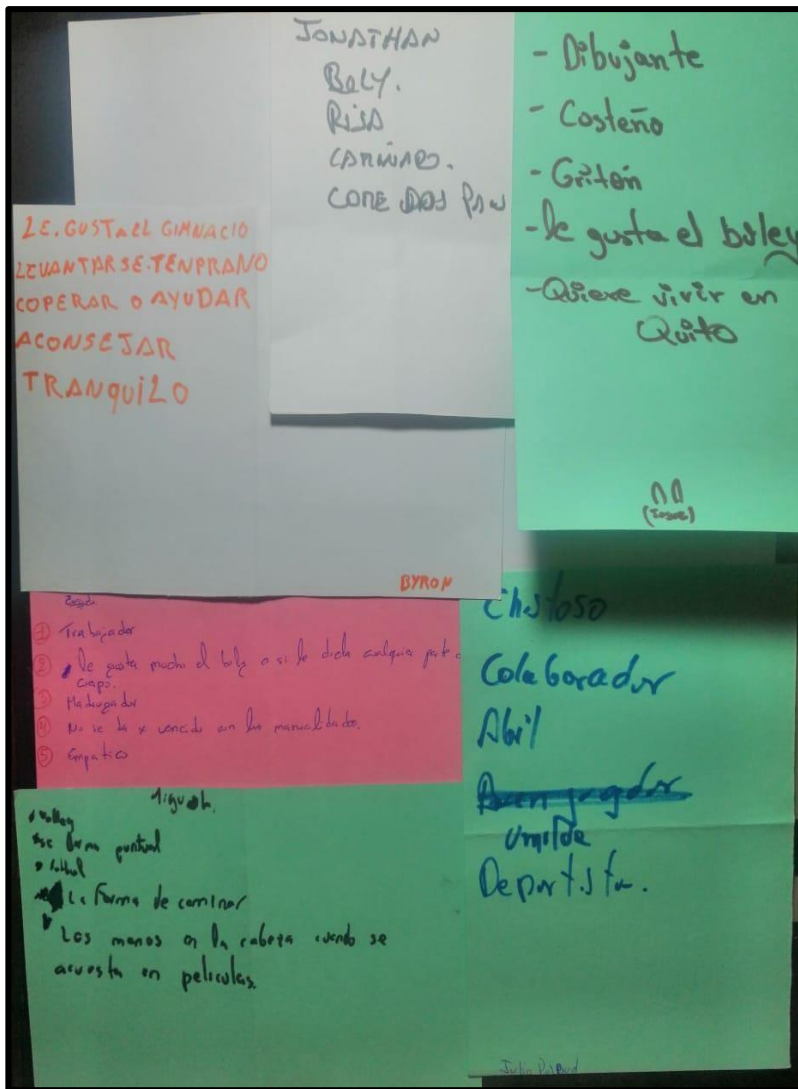 JONATHAN
BOLY.
RISA
CAMINADO.
COME DOS PAN
- Dibujante
- Costeño
- Gritón
- le gusta el boley
- Quiere vivir en
Quito
LE. GUSTA EL GIMNACIO
LEVANTARSE. TENPRANO
COPERAR O AYUDAR
ACONSEJAR
TRANQUILO
BYRON
① Trabajador
② le gusta mucho el boly o si le duele cualquier parte
cuerpo.
③ Madrugador
④ No se da x vencido con las manualidades.
⑤ Empatico
Chistoso
Colaborador
Abil
Umilde
Deportista.
volley
se levanta puntual
futbol
La forma de caminar
Las manos en la cabeza cuando se
acuesta en peliculas.